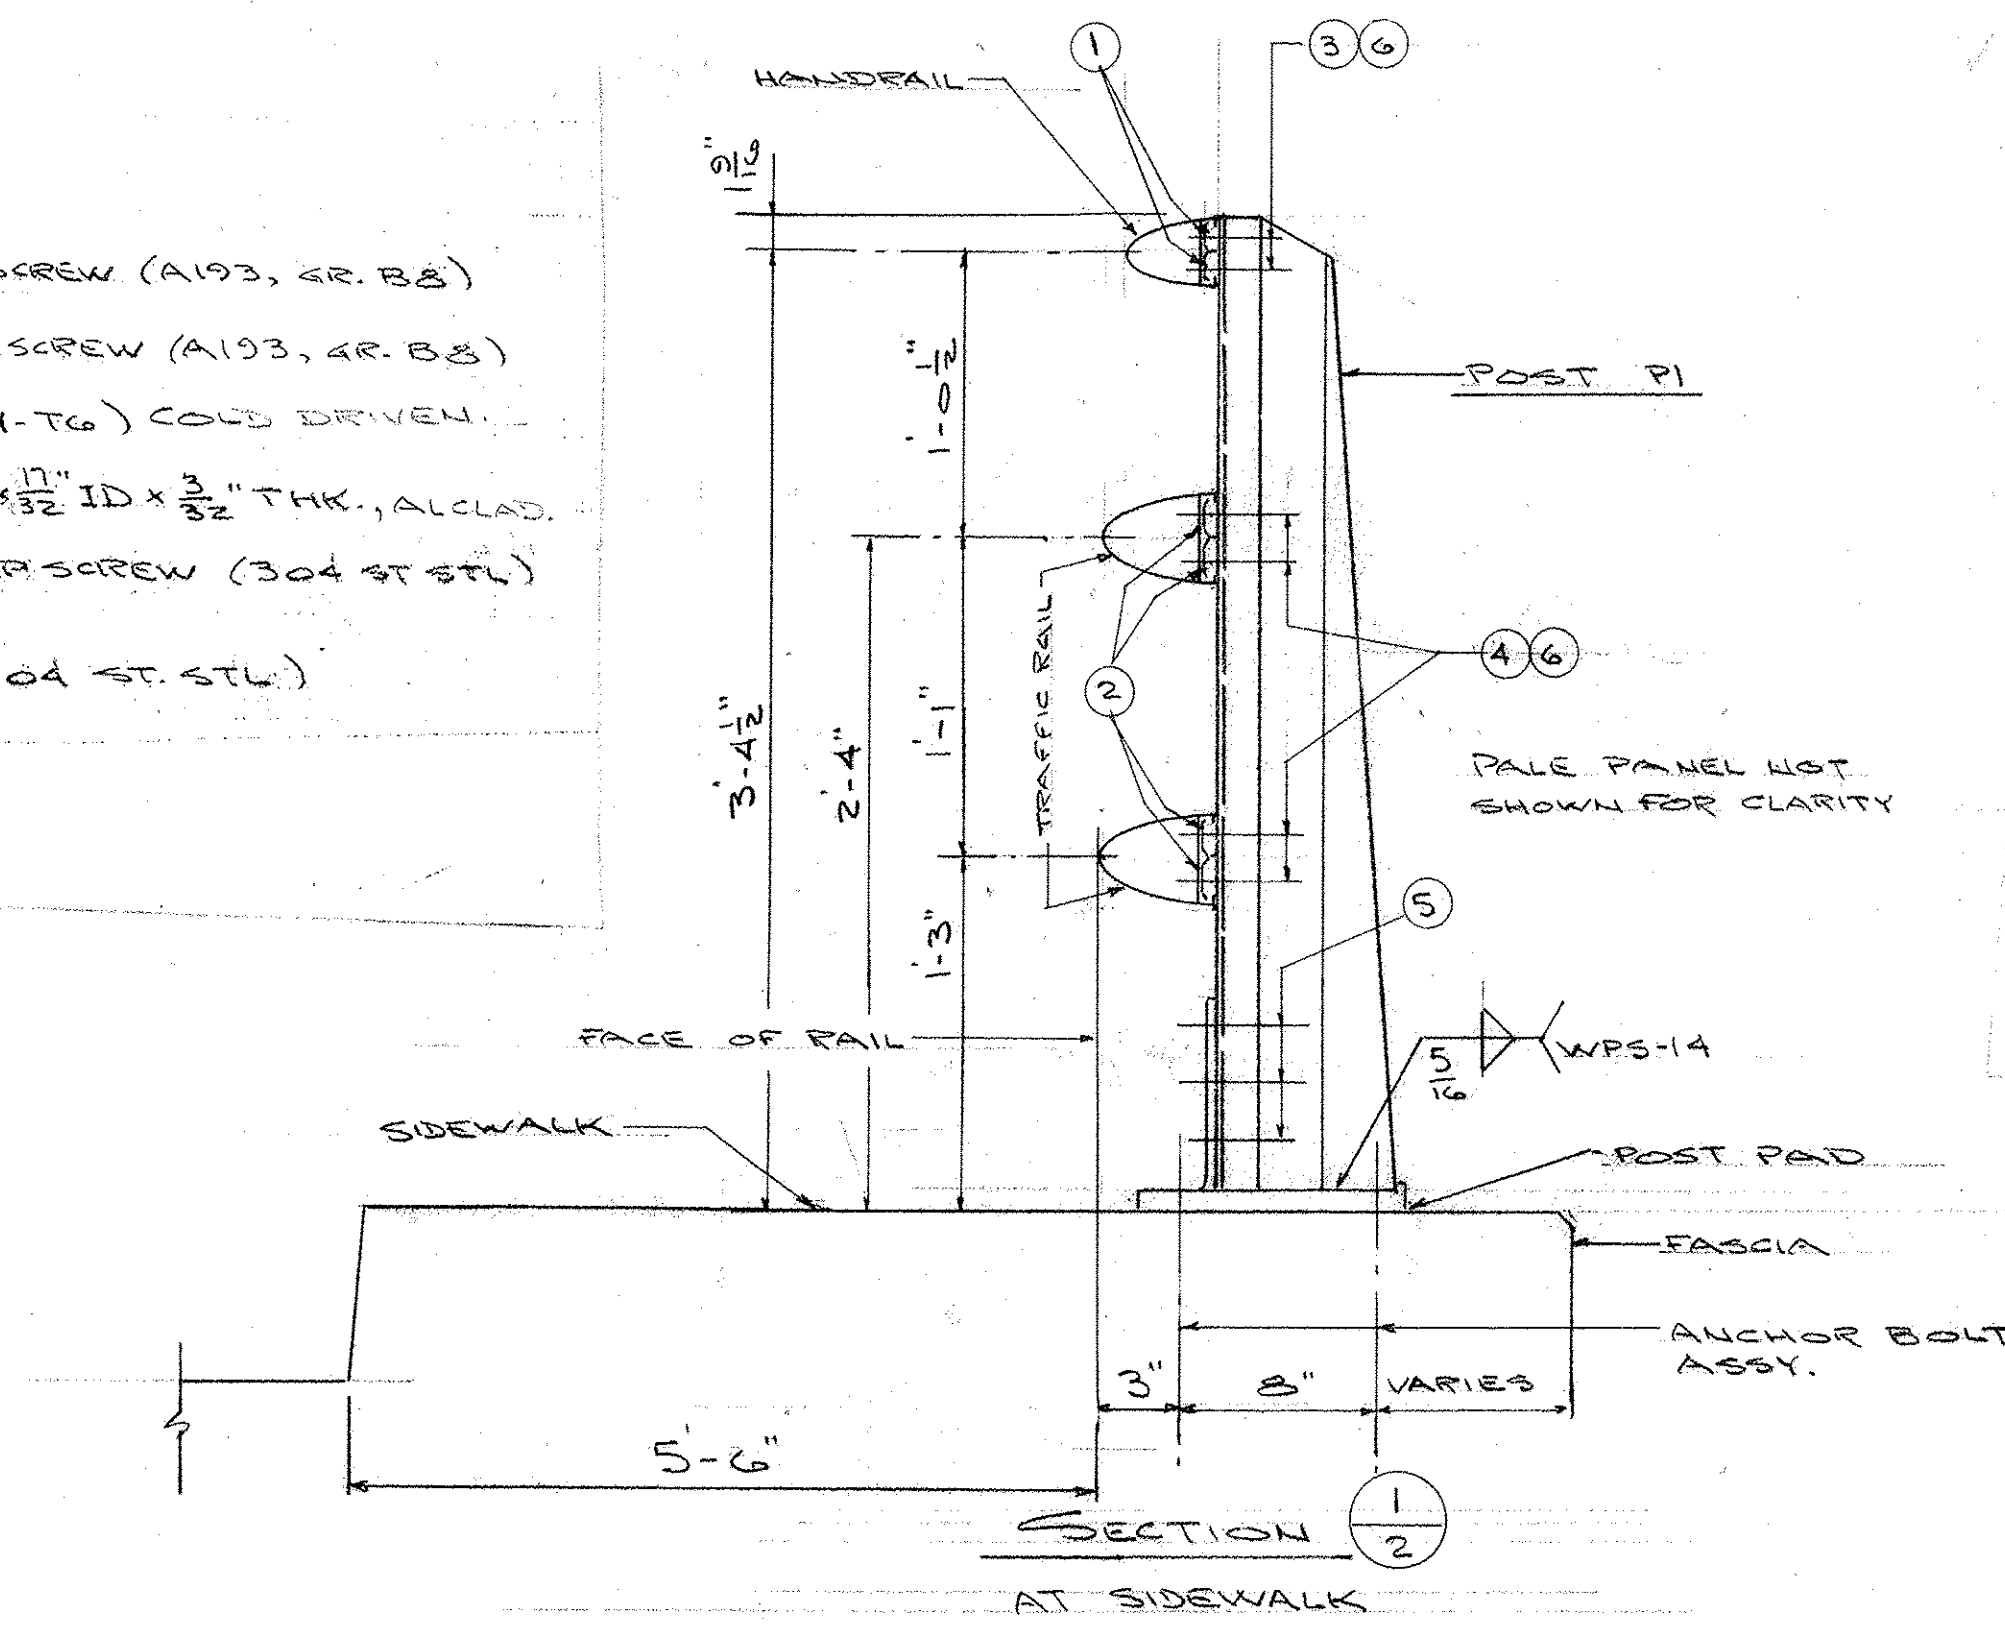 SCREW (A193, GR. B8)
SCREW (A193, GR. B8)
-T6) COLD DRIVEN.
17/32" ID x 3/32" THK., ALCLAD.
SCREW (304 ST STL)
04 ST. STL)
1
3 6
HANDRAIL
1 9/16"
1'-0 1/2"
POST P1
TRAFFIC RAIL
2
4 6
3'-4 1/2"
2'-4"
1'-1"
PALE PANEL NOT
SHOWN FOR CLARITY
5
1'-3"
FACE OF RAIL
5/16
WPS-14
SIDEWALK
POST PAD
FASCIA
ANCHOR BOLT
ASSY.
3"
8"
VARIES
5'-6"
SECTION 1/2
AT SIDEWALK